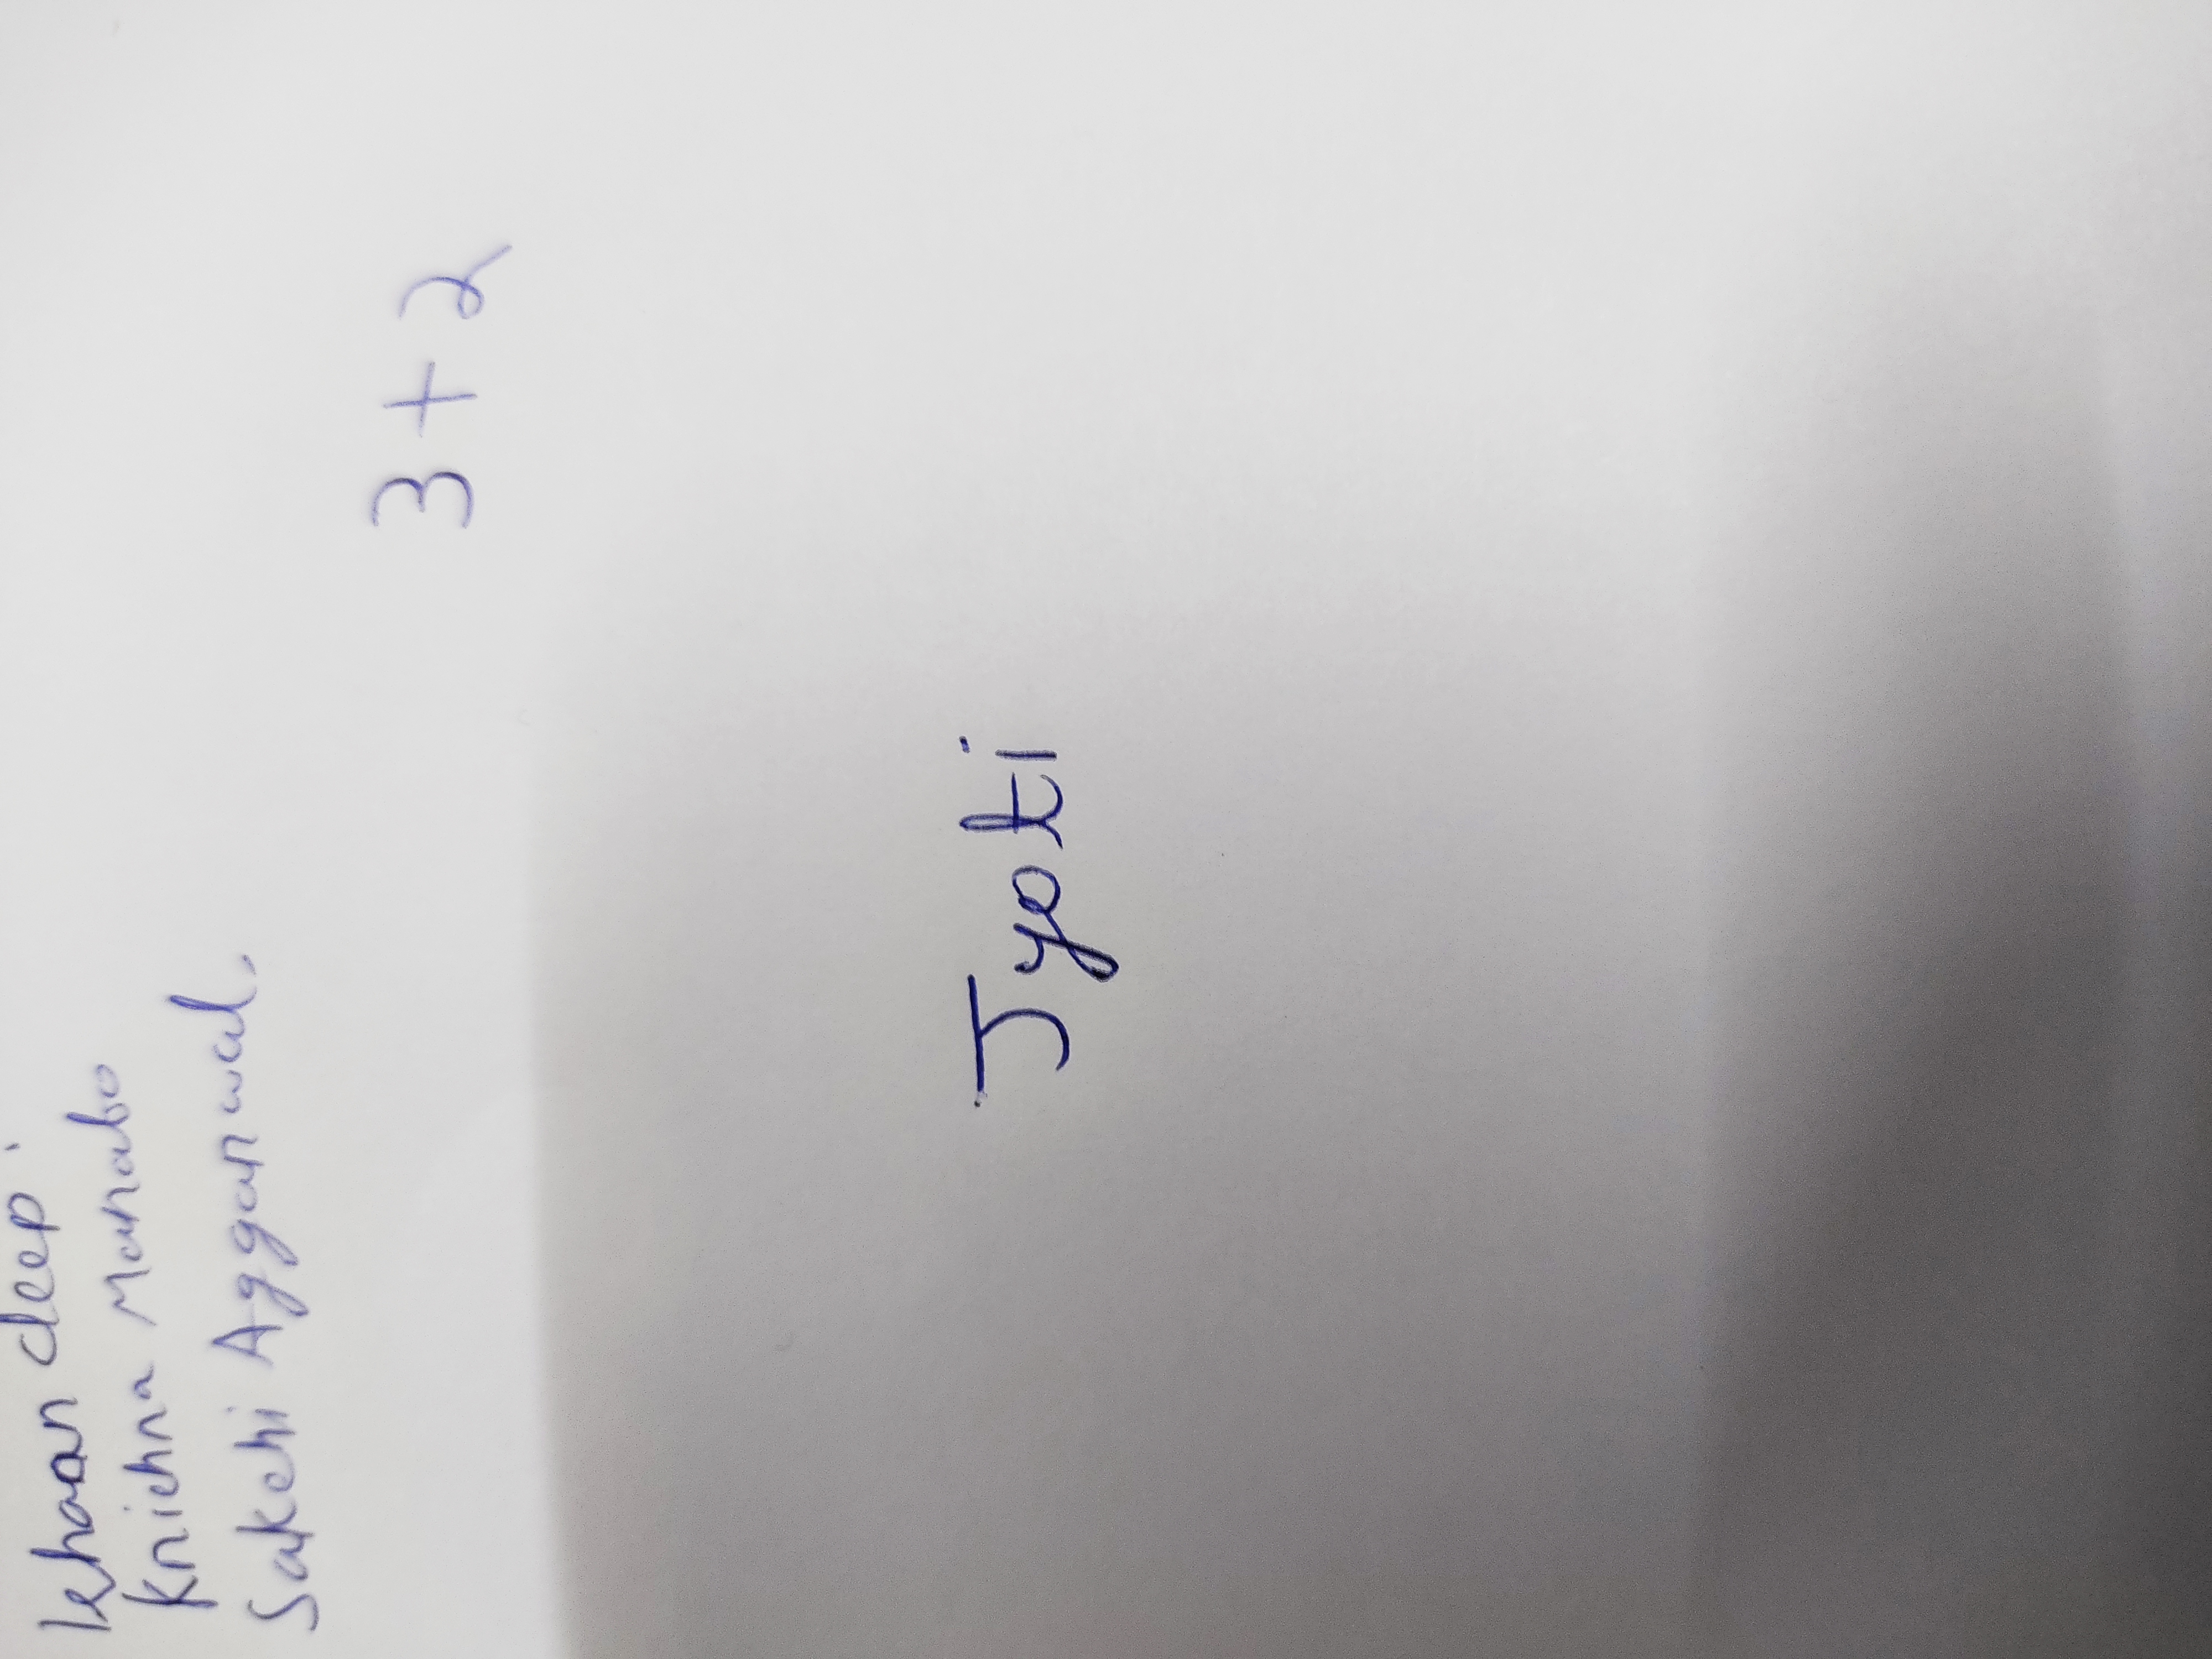 Ishaan deep.
Krishna Manabo
Sakshi Aggarwal.
3+2
Jyoti